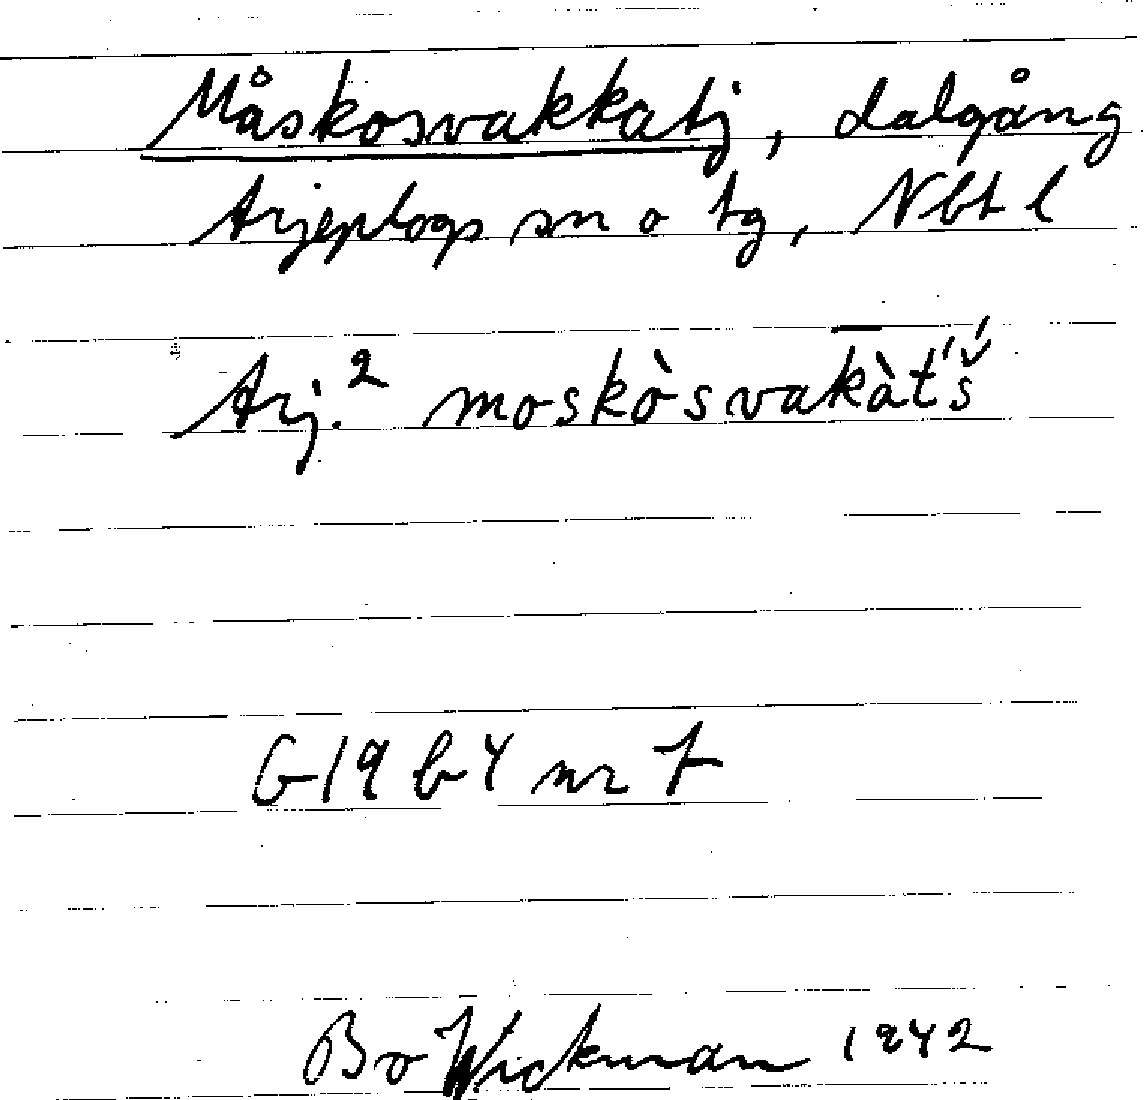 Måskosvakkatj, dalgång
Arjeplogs sn o tg, Nbt l
Arj.² moskòsvak̅àt́š́
G19 b4 nr 7
Bo Wickman 1942